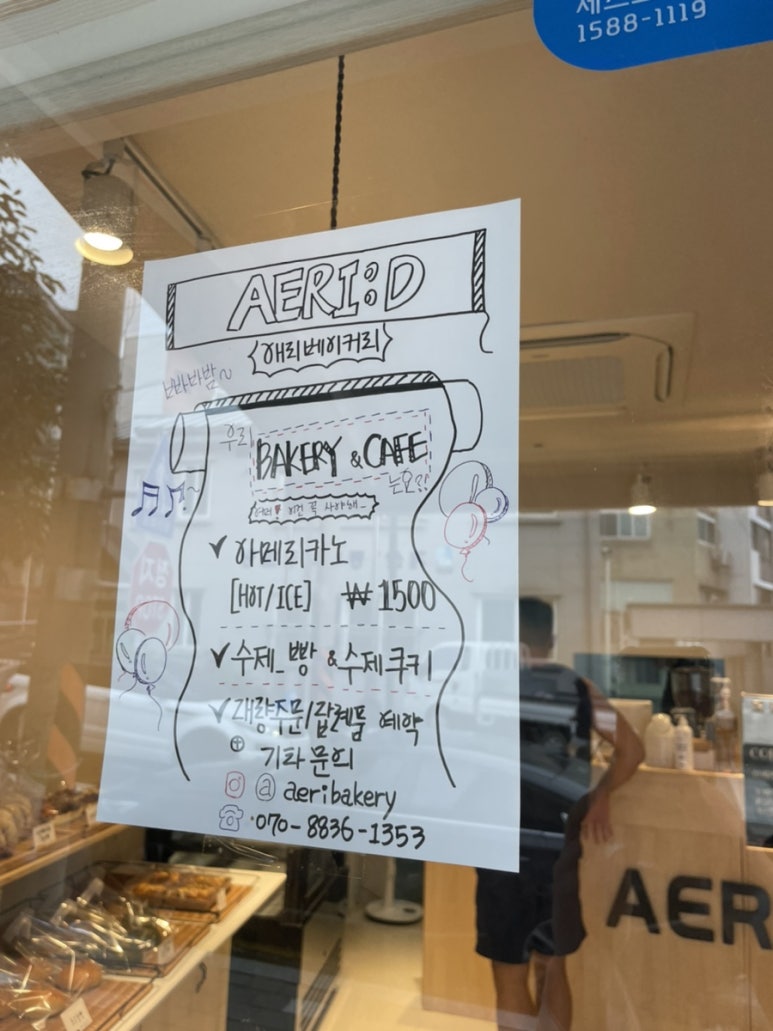 세스코
1588-1119
AERI:D
애리베이커리
빠바바밤~
우리
BAKERY & CAFE
는요?!
아메리카노
[HOT/ICE] ₩1500
수제_빵 & 수제쿠키
대량주문/답례품 예약
기타문의
@ aeribakery
070-8836-1353
AER